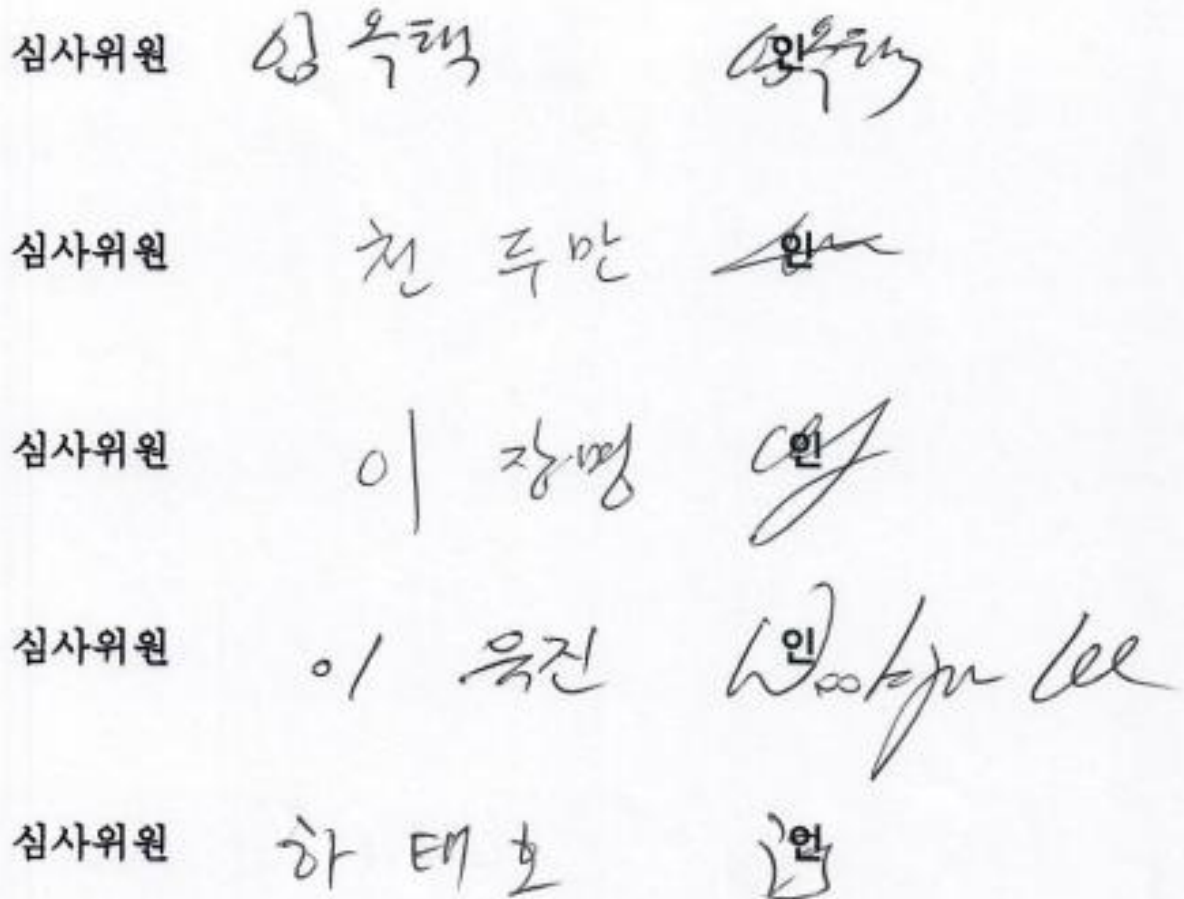 심사위원 임옥택 인
심사위원 천 두 만 인
심사위원 이 장명 인
심사위원 이 욱진 인 Wookjin Lee
심사위원 하 태 호 인